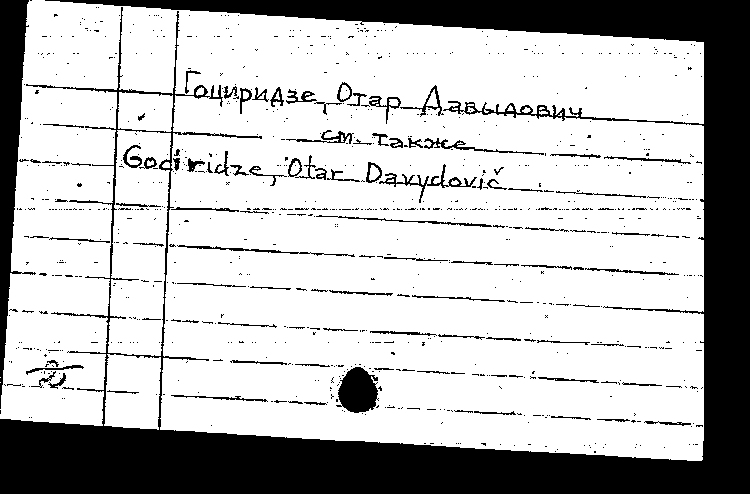 Гоциридзе, Отар Давыдович
см. также
Gociridze, Otar Davydovič